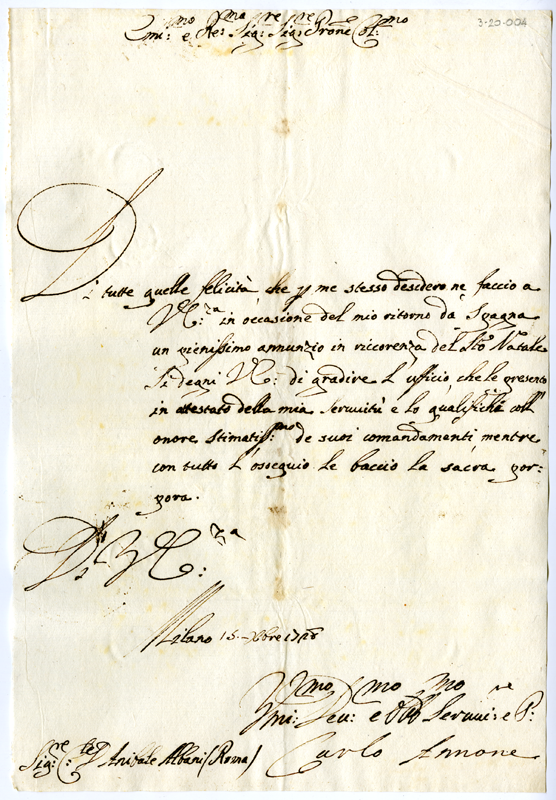 3-20-004
Emi:mo e Re:ma Sig:re Sig:re Prone Col:mo
Di tutte quelle felicità che p me stesso desidero ne faccio a
V.E:za in occasione del mio ritorno da Spagna
un pienissimo annunzio in riccorenza del Sto Natale
Si degni V.E: di gradire l ufficio, che le presento
in attestato della mia Seruuitù e lo qualifichi coll'
onore stimatiss:mo de suoi comandamenti mentre
con tutto l'ossequio le baccio la sacra por=
pora.
Di V.E:za
Milano 15 Xbre
Vmi:mo Deu:mo e Obb:mo Seruui:re e
Sig:re C:le Anibale Albani (Roma)
Carlo Annone